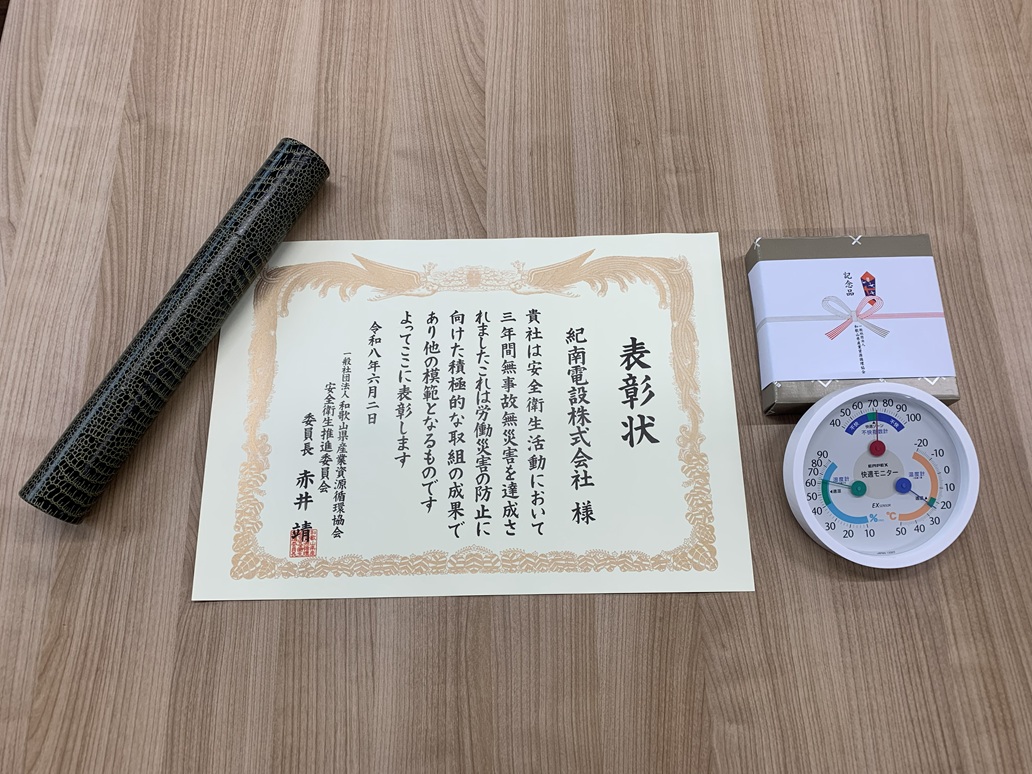 表彰状
紀南電設株式会社 様
貴社は安全衛生活動において
三年間無事故無災害を達成さ
れましたこれは労働災害の防止に
向けた積極的な取組の成果で
あり他の模範となるものです
よってここに表彰します
令和八年六月二日
一般社団法人和歌山県産業資源循環協会
安全衛生推進委員会
委員長 赤井 靖
記念品
40 50 60 70 80 90 100
快適ゾーン
不快指数計
EMPEX
快適モニター
EX
湿度計
温度計
90 80 70 60 50 40 30 20 10
%
℃
-20 -10 0 10 20 30 40